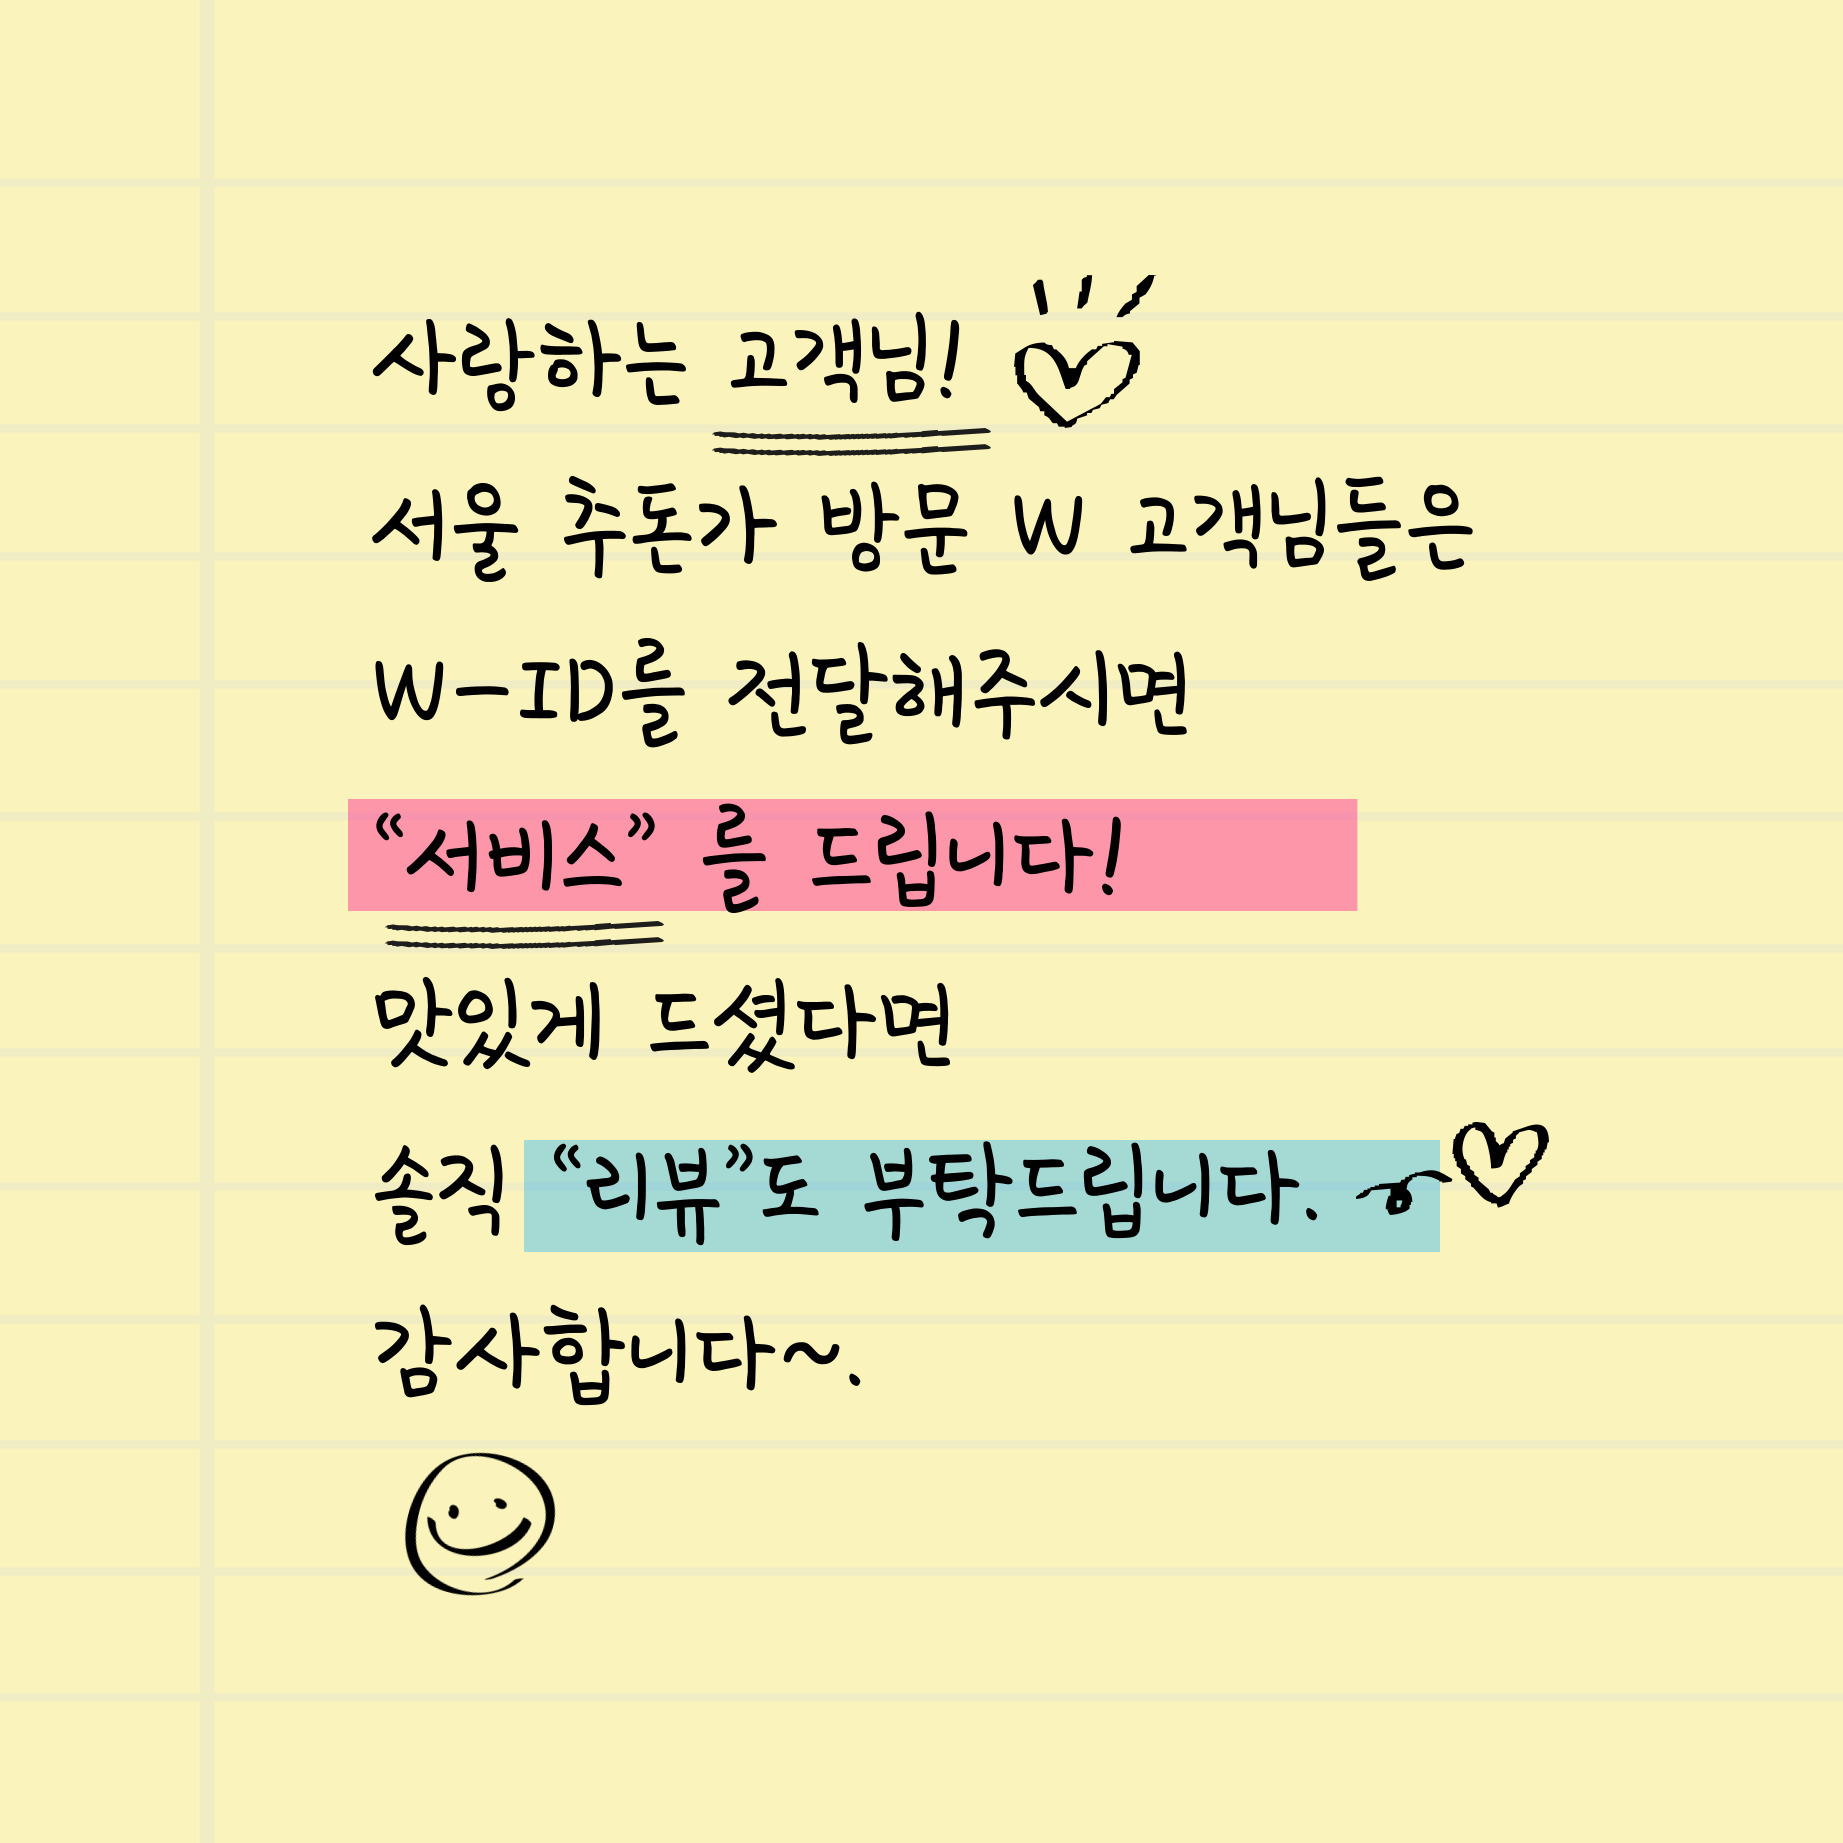 사랑하는 고객님!
서울 추돈가 방문 W 고객님들은
W-ID를 전달해주시면
“서비스” 를 드립니다!
맛있게 드셨다면
솔직 “리뷰”도 부탁드립니다.
감사합니다~.